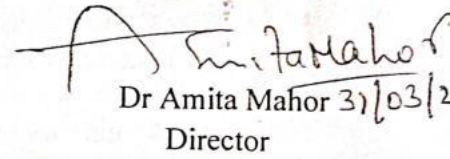 AmitaMahor
Dr Amita Mahor 31/03/2
Director